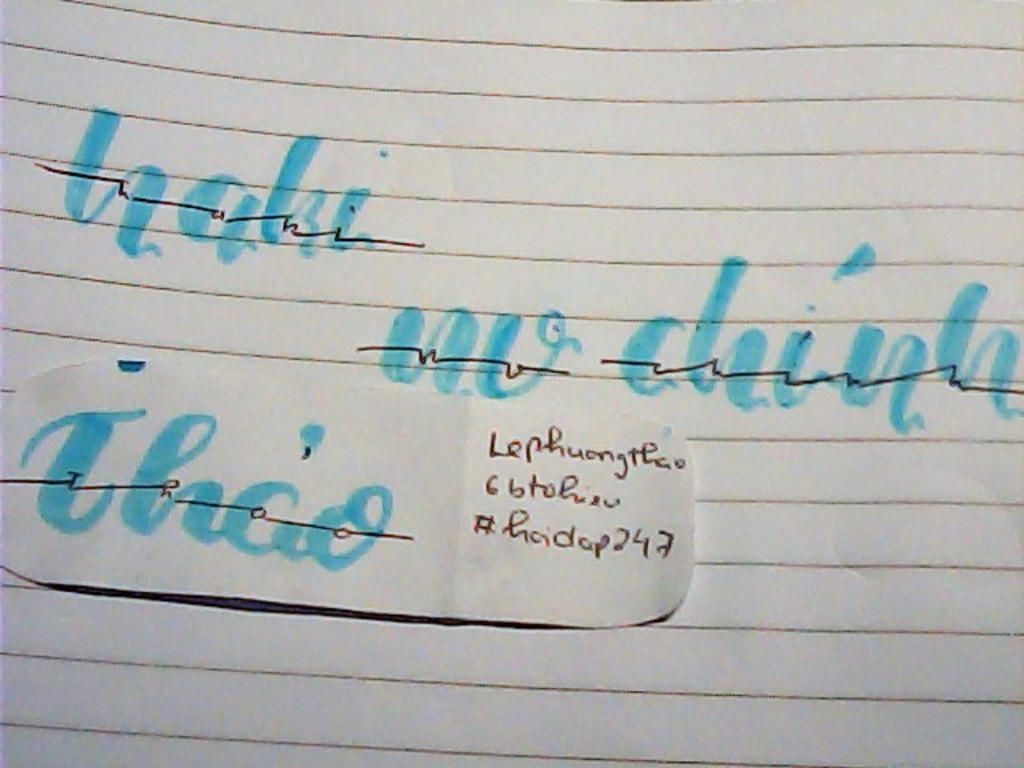 haki
nơ chính
Thảo
Lephuongthao
6btohieu
#hoidap247